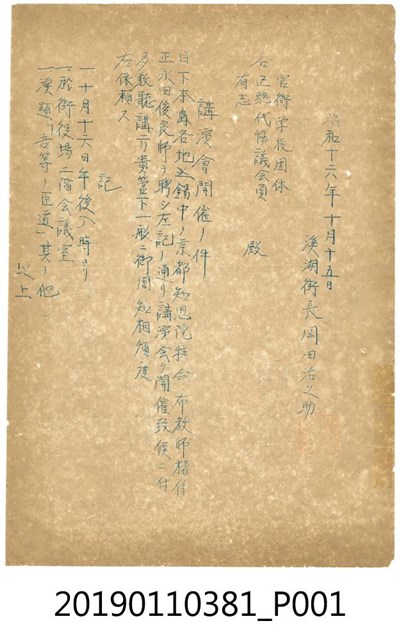 昭和十六年十月十五日
溪湖街長岡田治之助
官衙学校団体
各区総代協議会員 殿
有志
講演會開催ノ件
目下本島各地巡錫中ノ京都知恩院特命布教師権僧
正永田俊良師ヲ聘シ左記ノ通リ講演会ヲ開催致候ニ付
多数聴講方貴管下一般ニ御周知相煩度
右依頼ス
記
一十月十六日午後八時ヨリ
一於街役場二階会議室
一演題「吾等ノ臣道」其ノ他
以上
20190110381_P001